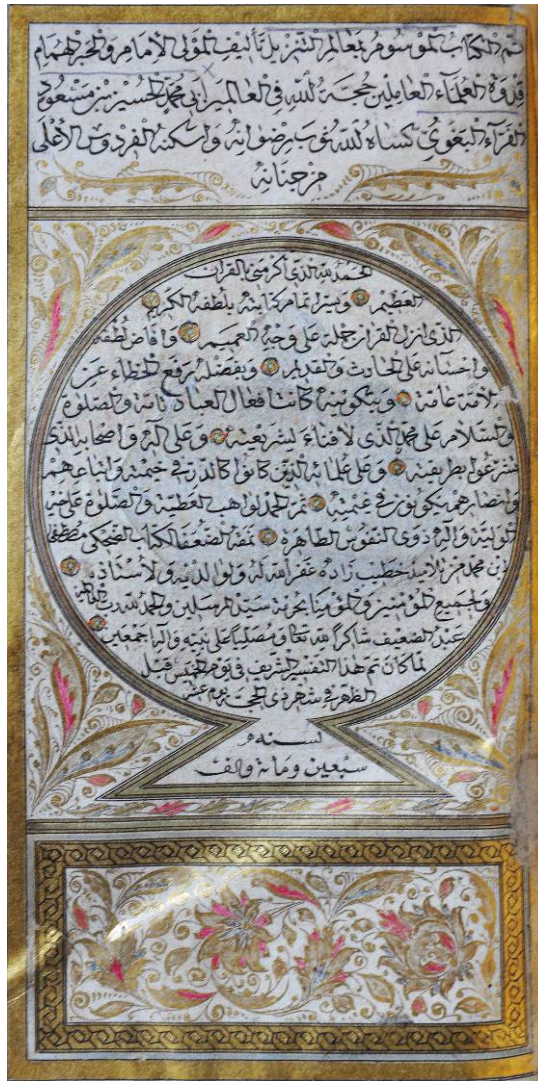 تم الكتاب الموسوم بمعالم التنزيل تأليف المولى الإمام والحبر الهمام
قدوة العلماء العاملين حجة الله في العالمين أبي محمد الحسين بن مسعود
الفراء البغوي كساه الله ثوب رضوانه واسكنه الفردوس الأعلى
من جنانه
الحمد لله الذي أكرمني بالقرآن
العظيم ويسر إتمام كتابته بلطفه الكريم
الذي انزل القرآن جملة على وجه العميم وافاض لطفه
واحسانه على الحادث والقديم وبفضله رفع الخطاء عن
لأمة عامة وبتكوينه كانت افعال العباد تامة والصلوة
والسلام على محمد الذي لا فناء لشريعته وعلى آله واصحابه الذي
شرعوا بطريقته وعلى علمائه الذين كانوا كالدر في خيمته واتباعهم
وانصارهم يكونون في غيمته ثم الحمد لواهب العطية والصلوة على خير
البرية وآله ذوي النفوس الطاهرة نمقه الضعفا الكتاب مصطفى
ابن محمد من تلاميذ خطيب زاده غفر الله له ولوالديه ولأستاذه
ولجميع المؤمنين والمؤمنات بحرمة سيد المرسلين والحمد لله رب العالمين
عبد الضعيف شاكرا لله تعالى ومصليا على نبيه وآله اجمعين
لما كان تم هذا التفسير الشريف في يوم الخميس قبل
الظهر في شهر ذي الحجة يوم عشر
لسنة
سبعين ومائة والف